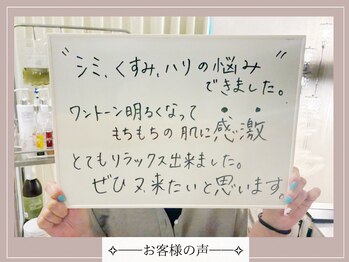 "シミ、くすみ、ハリの悩み"
できました。
ワントーン明るくなって
もちもちの肌に感激
とてもリラックス出来ました。
ぜひ又、来たいと思います。
お客様の声